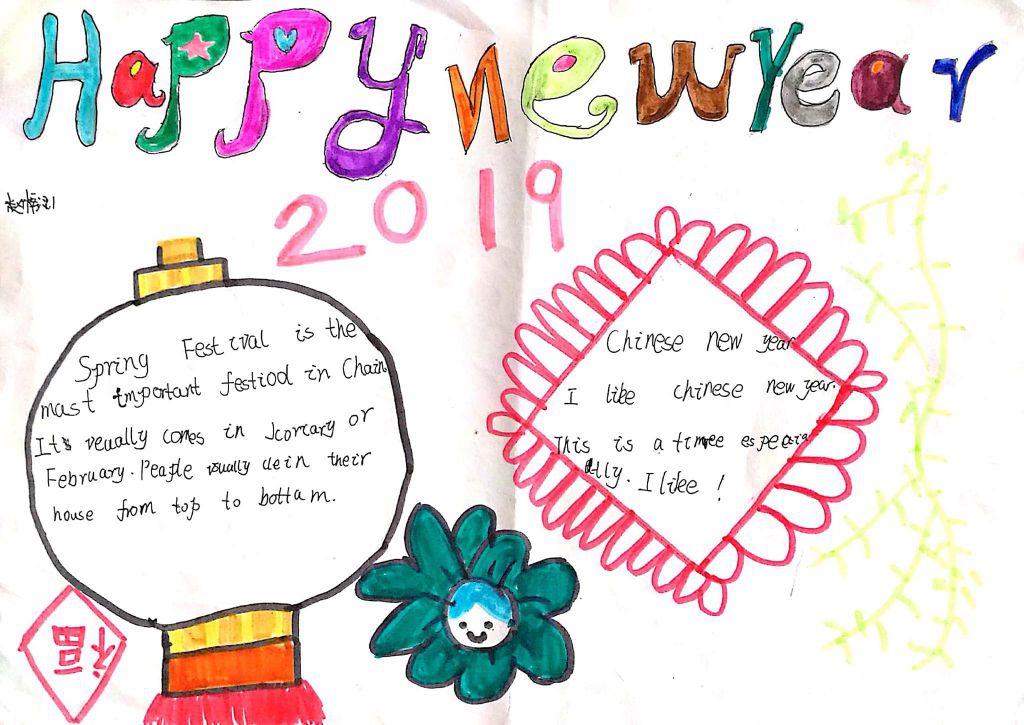 Happy new year
2019
Spring Festival is the
mast important festiod in Chain
It's veually comes in Jcorrary or
February. Peaple usually clein their
house from top to bottam.
Chinese new year
I like chinese new year.
This is a timee especia
lly. I like !
福